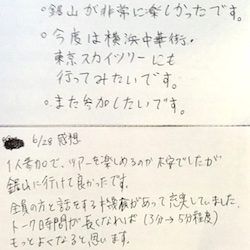 ○鎌山が非常に楽しかったです。
○今度は横浜中華街・
東京スカイツリーにも
行ってみたいです。
○また参加したいです。
6/28 感想
1人参加で、ツアーを楽しめるのか不安でしたが
鎌山に行けて良かったです。
全員の方と話をする機会があって充実していました。
トーク時間が長くなれば(3分→5分程度)
もっとよくなると思います。